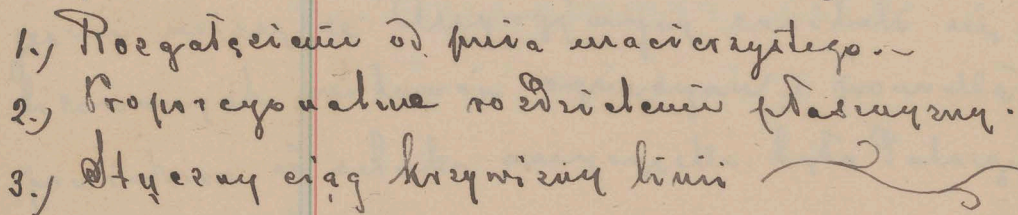 1.) Rozgałęzieniu od pnia macierzystego.-
2.) Proporcyonalne rozdzieleniu płaszczyzny.
3.) Stęczny ciąg krzywizny linii